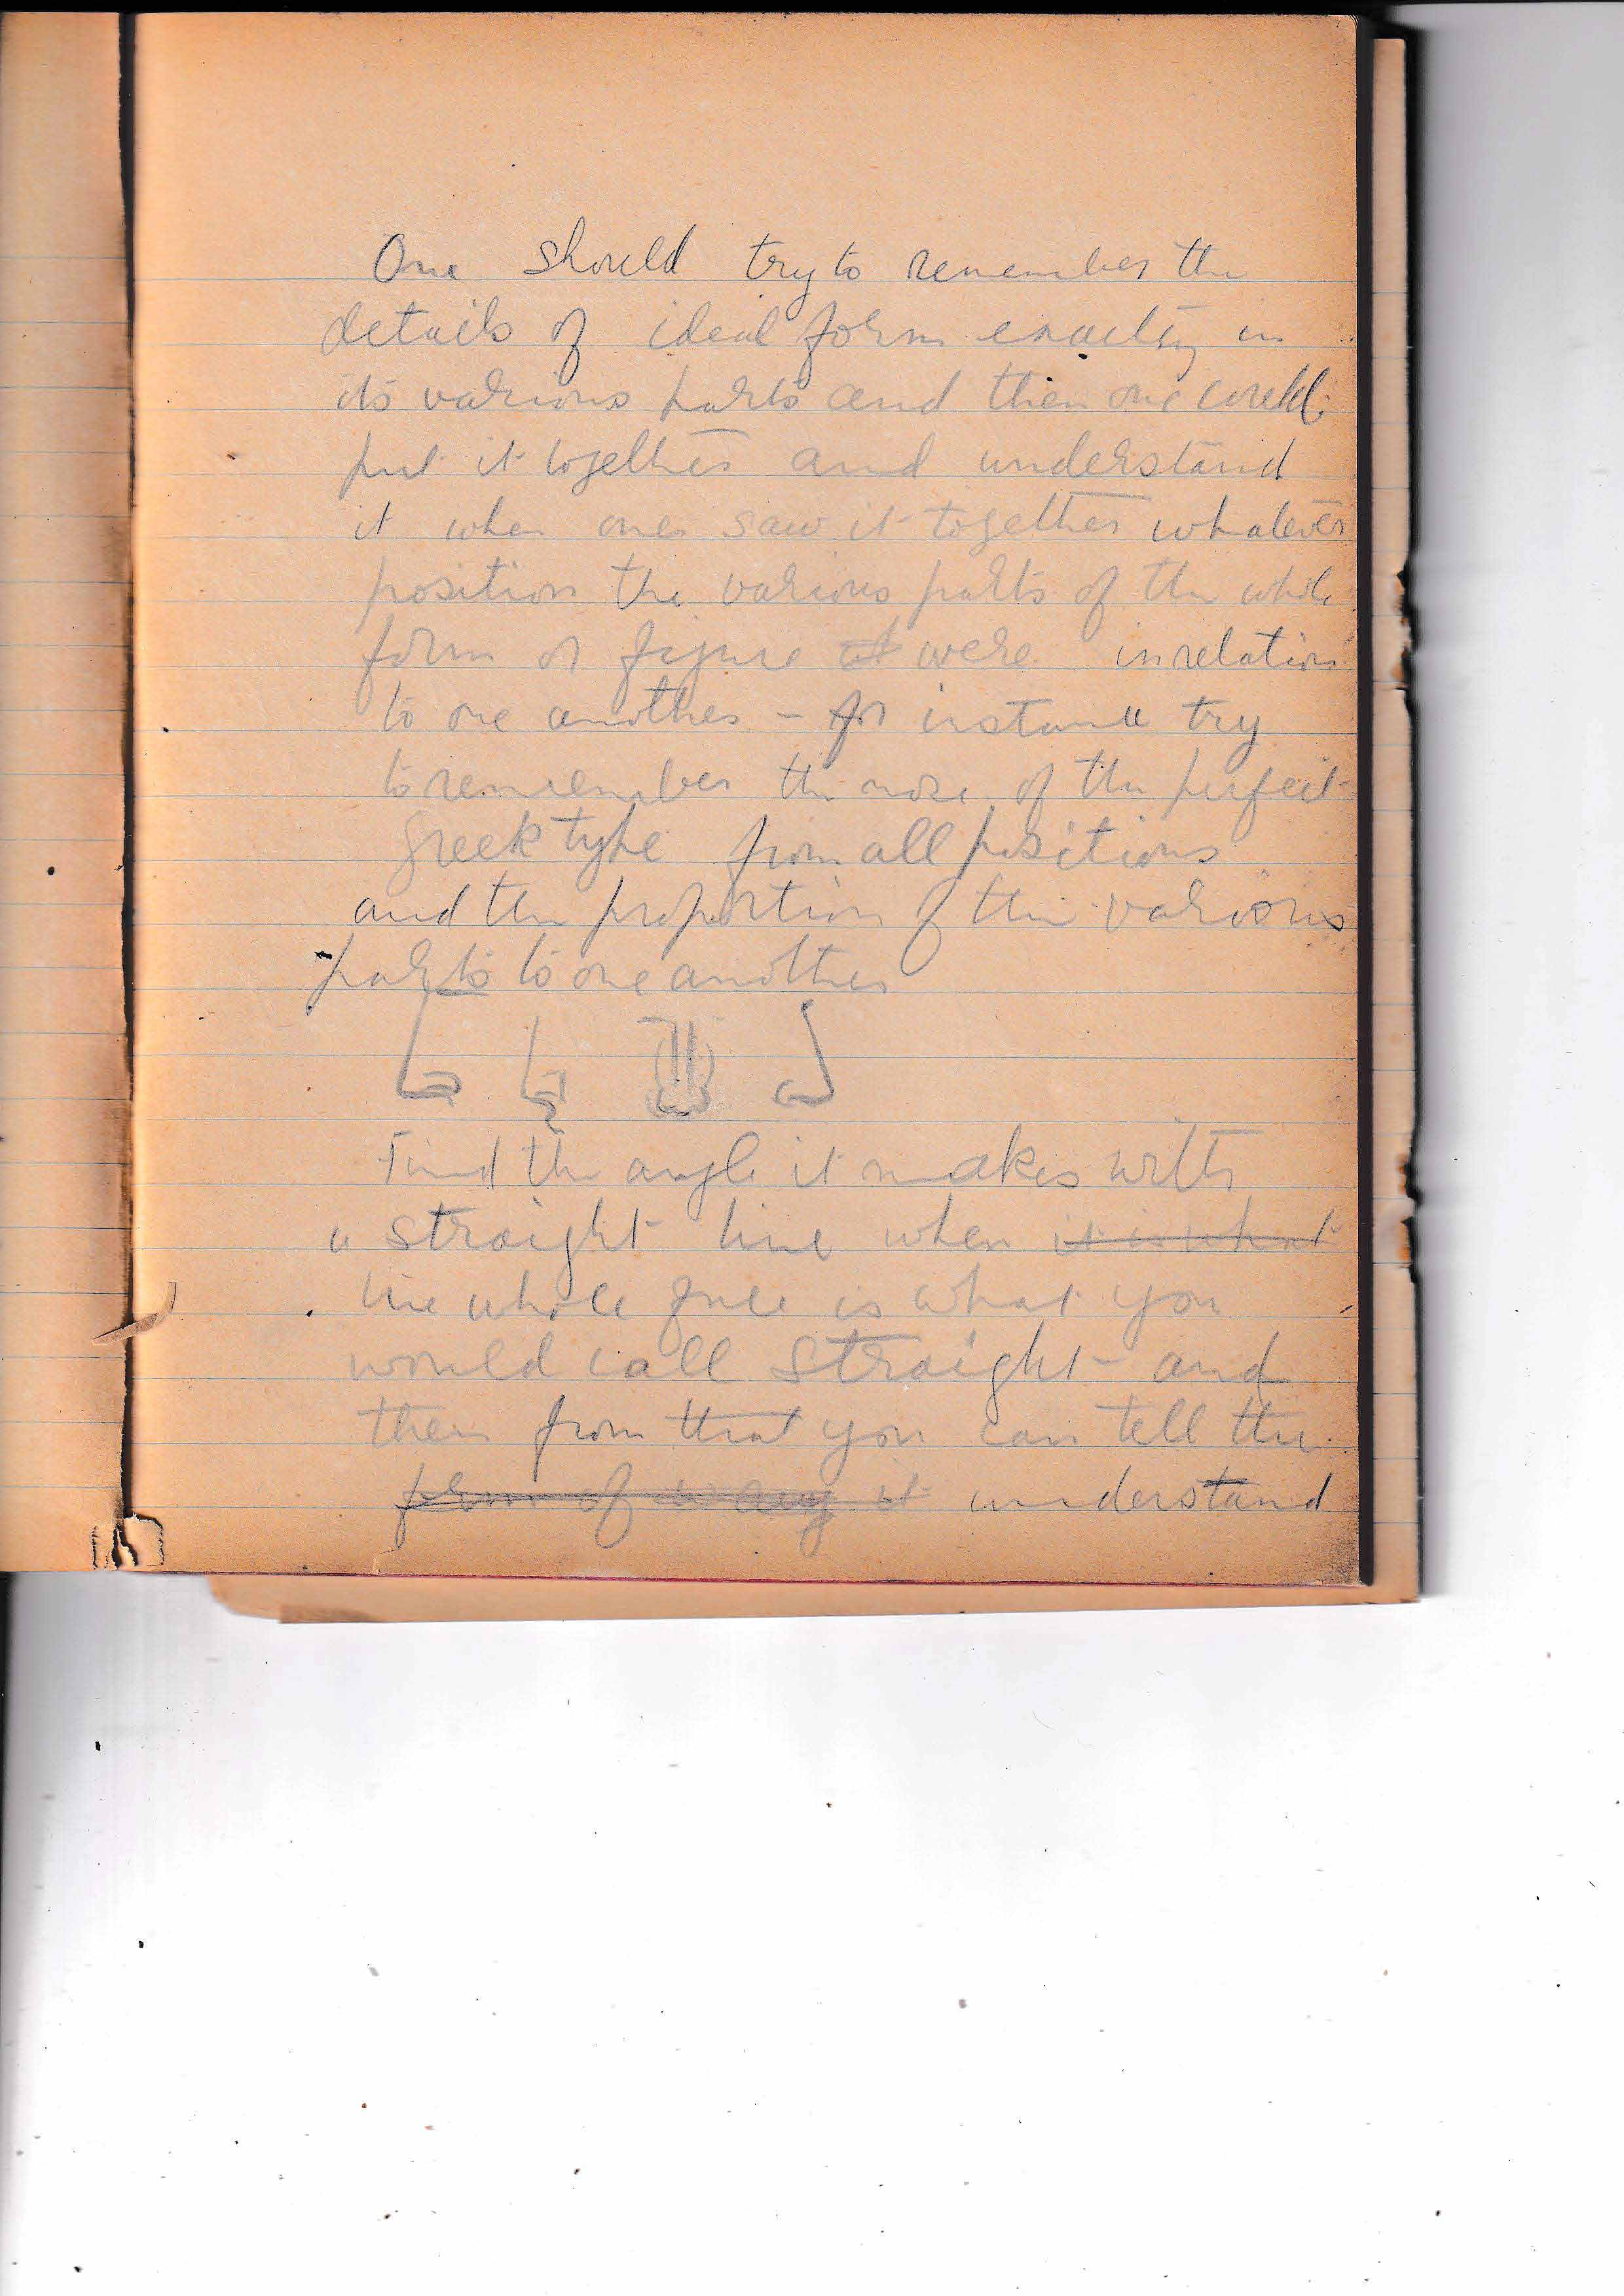 One should try to remember the
details of ideal form exactly in
its various parts and then one could
put it together and understand
it when one saw it together whatever
position the various parts of the whole
form or figure were in relation
to one another - for instance try
to remember the nose of the perfect
greek type from all positions
and the proportion of the various
parts to one another
Find the angle it makes with
a straight line when it is what
the whole face is what you
would call straight - and
then from that you can tell the
form of way it understand